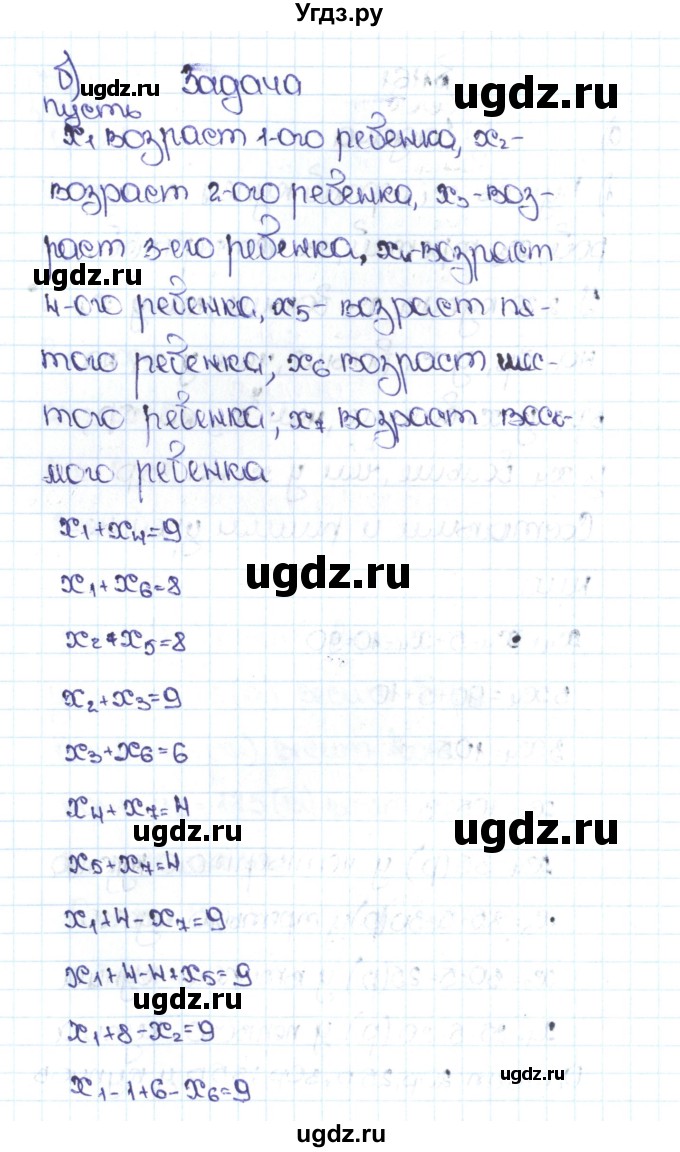 Угдз.ру
б) Задача
ugdz.ru
ugdz.ru
пусть
x₁ возраст 1-ого ребенка, x₂-
возраст 2-ого ребенка, x₃-воз-
раст 3-его ребенка, x₄-возраст
ugdz.ru
4-ого ребенка, x₅- возраст пя-
того ребенка; x₆ возраст шес-
того ребенка; x₇ возраст
мого ребенка
x₁+x₄=9
x₁+x₆=8
ugdz.ru
x₂+x₅=8
x₂+x₃=9
x₃+x₆=6
x₄+x₇=4
ugdz.ru
ugdz.ru
x₅+x₇=4
x₁+4-x₇=9
x₁+4-4+x₅=9
ugdz.ru
x₁+8-x₂=9
ugdz.ru
x₁-1+6-x₆=9
ugdz.ru